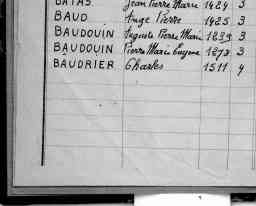 BATAS Jean Pierre Marie 1424 3
BAUD Ange Pierre 1425 3
BAUDOUIN Auguste Pierre Marie 1239 3
BAUDOUIN Pierre Marie Eugene 1273 3
BAUDRIER Charles 1511 4